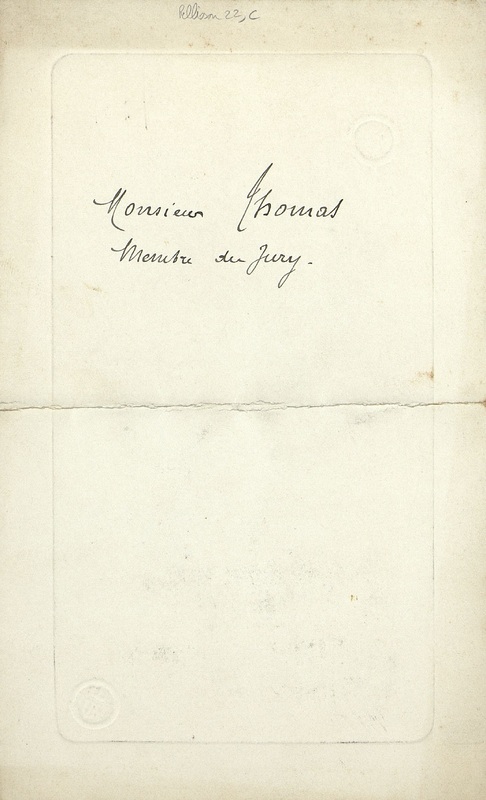 Pellisson 22, C
Monsieur Thomas
Membre du Jury.